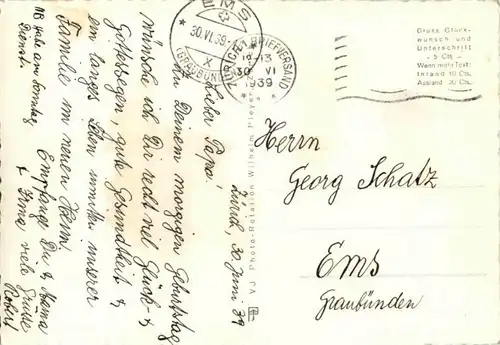 Zürich, 30. Juni 39
Lieber Papa!
Zu Deinem morgigen Geburtstag
wünsche ich Dir recht viel Glück- &
Gottessegen, gute Gesundheit &
ein langes Leben inmitten unserer
Familie im neuen Heim.
Empfange Du & Mama
& Irma viele Grüsse
Robert
NB Habe am Sonntag
Dienst.
EMS
30.VI.39
X
(GRAUBÜNDEN)
ZÜRICH 1 BRIEFVERSAND
30 VI
1939
Gruss Glück-
wunsch und
Unterschrift
- 5 Cts -
Wenn mehr Text:
Inland 10 Cts,
Ausland 20 Cts.
TJ Photo-Rotation Wilhelm Pleyer
Herrn
Georg Schatz
Ems
Graubünden